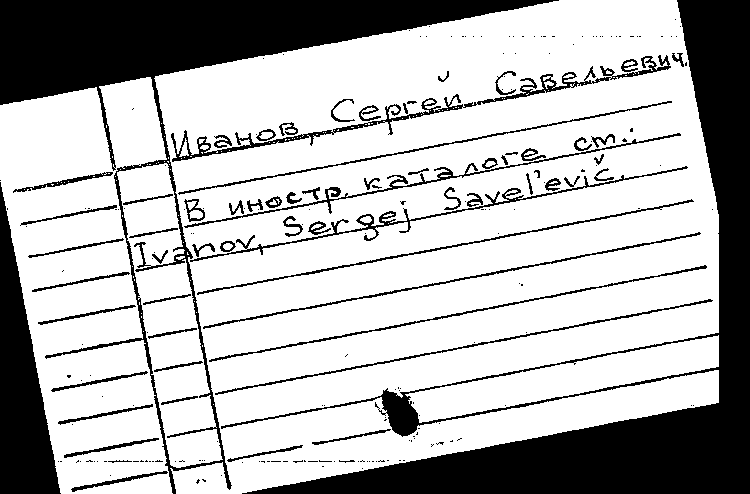 Иванов, Сергей Савельевич.
В иностр. каталоге ст.:
Ivanov, Sergej Savel'evič.